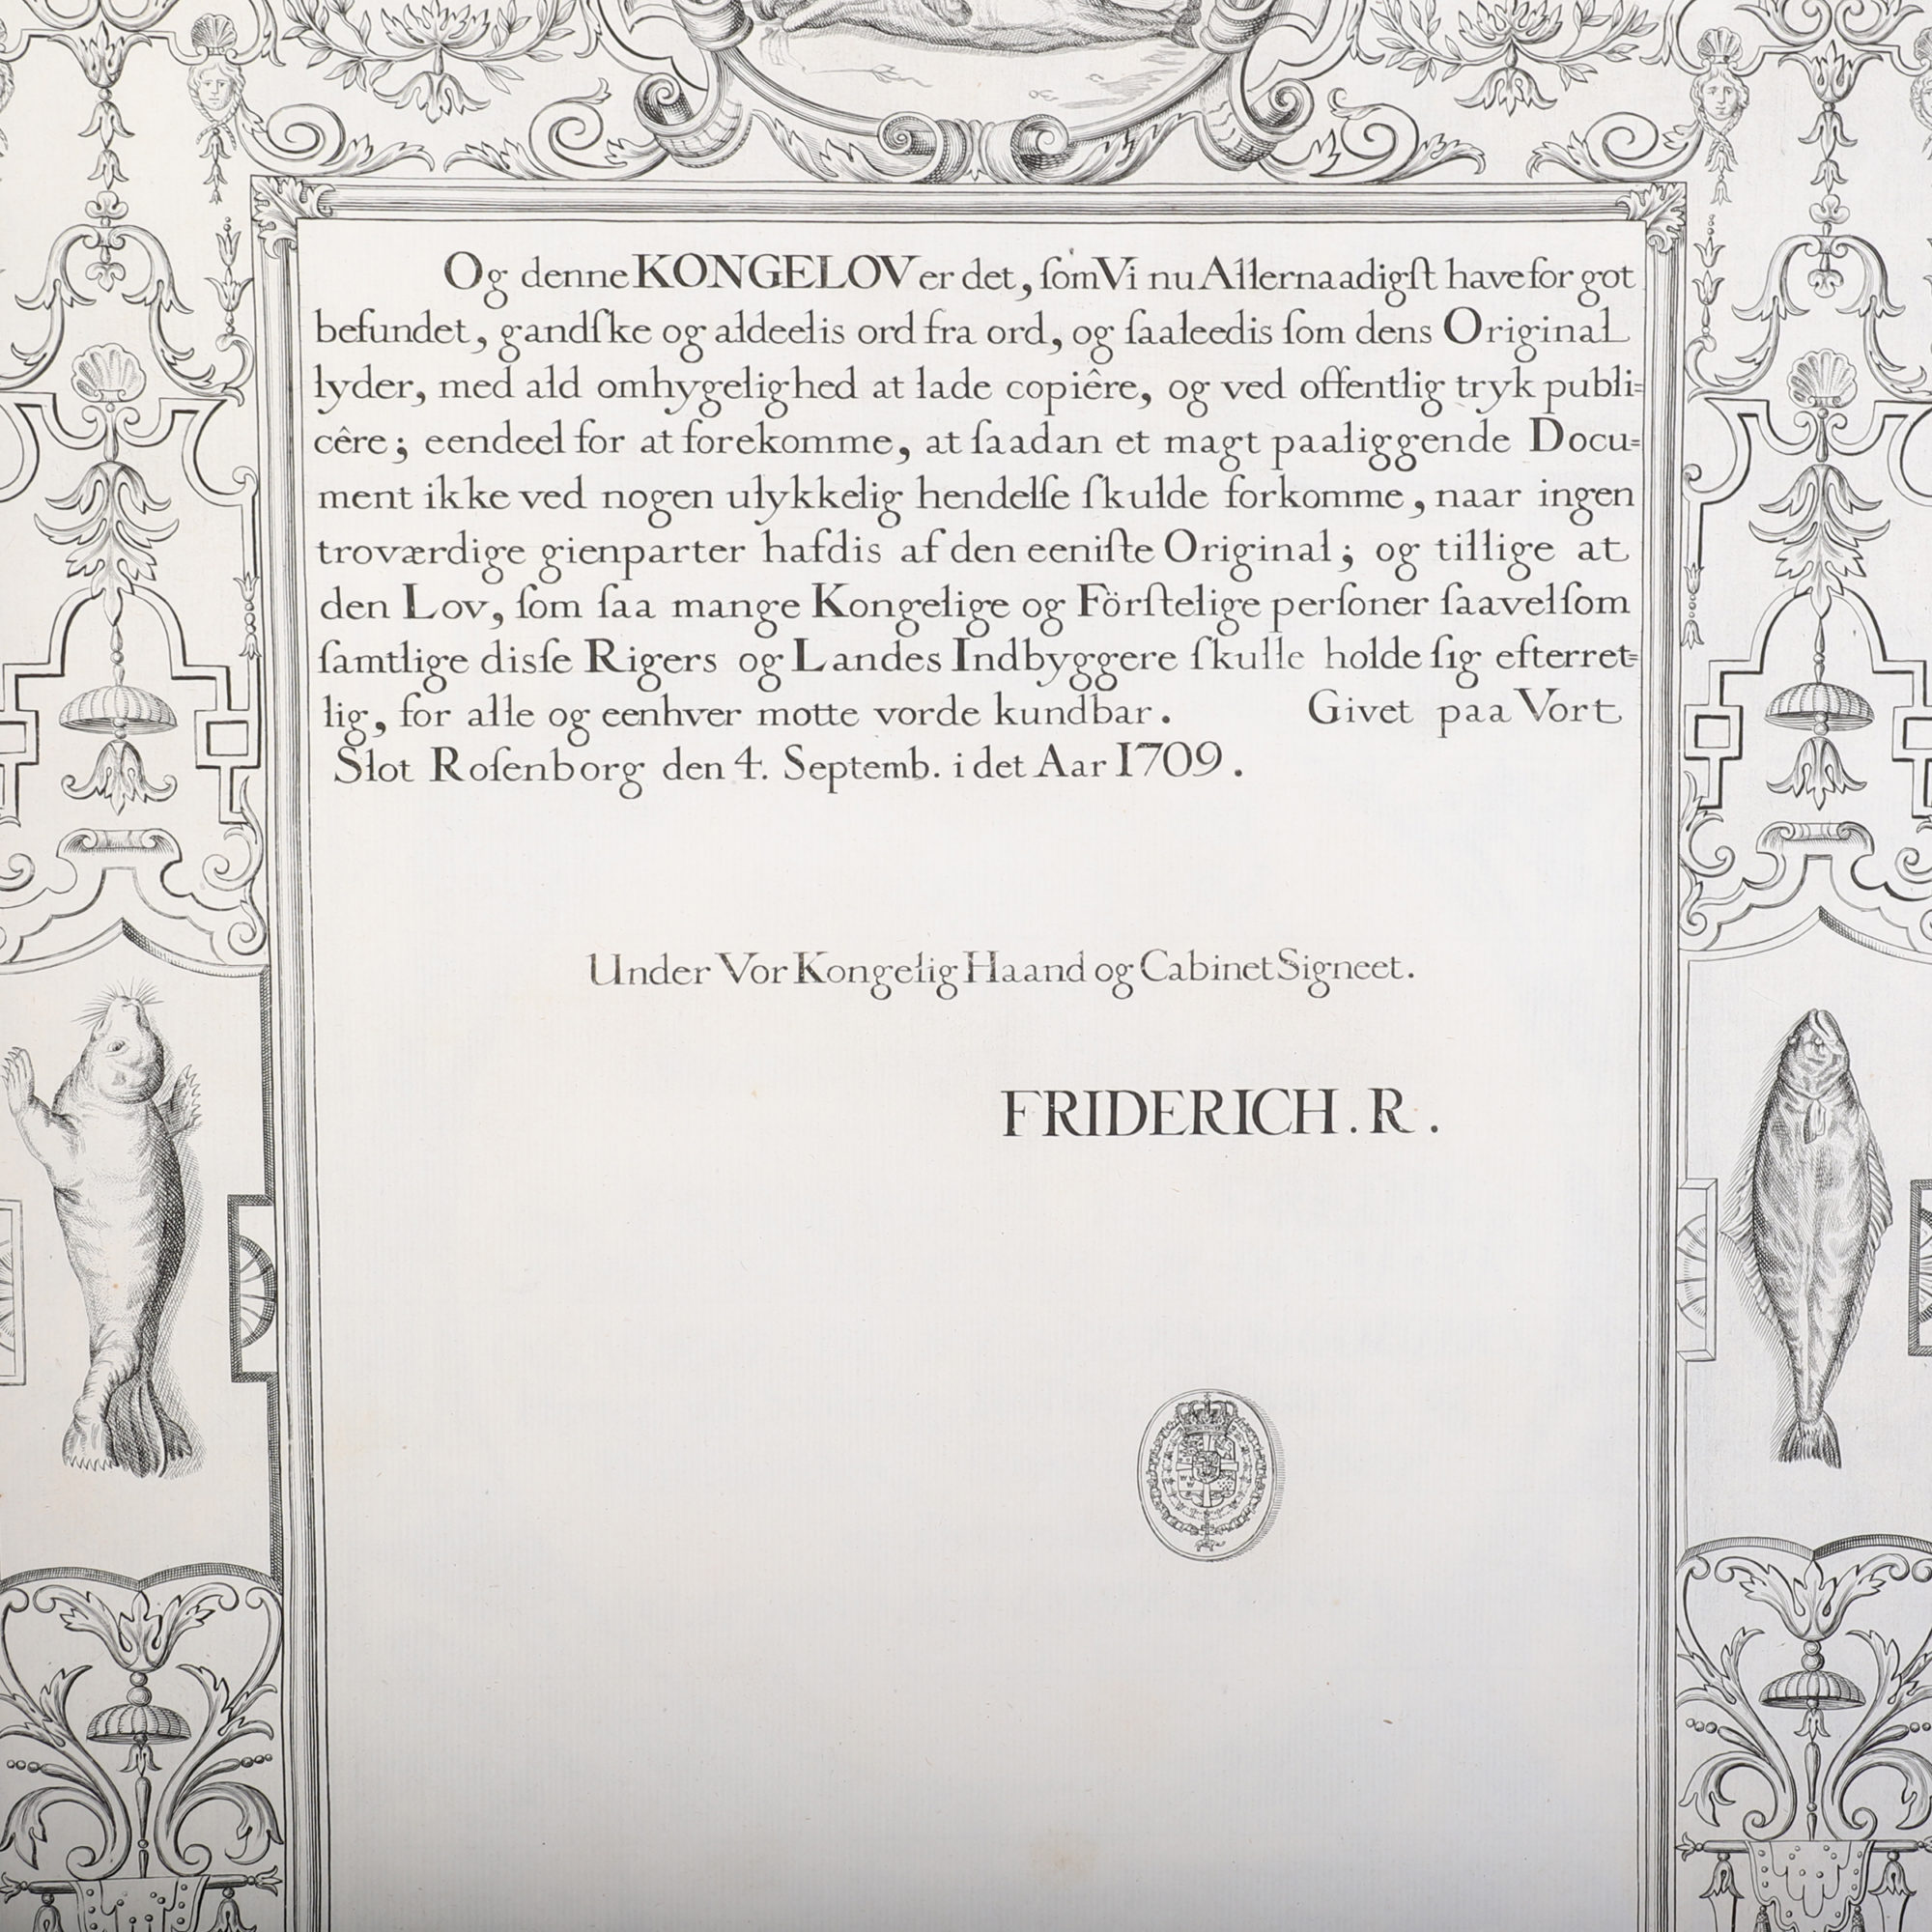 Og denne KONGELOV er det, ſom Vi nu Allernaadigſt have for got
befundet, gandſke og aldeelis ord fra ord, og ſaaleedis ſom dens Original
lyder, med ald omhygelighed at lade copiêre, og ved offentlig tryk publi=
cêre; eendeel for at forekomme, at ſaadan et magt paaliggende Docu=
ment ikke ved nogen ulykkelig hendelſe ſkulde forkomme, naar ingen
troværdige gienparter hafdis af den eeniſte Original; og tillige at
den Lov, ſom ſaa mange Kongelige og Förſtelige perſoner ſaavelſom
ſamtlige disſe Rigers og Landes Indbyggere ſkulle holde ſig efterret=
lig, for alle og eenhver motte vorde kundbar. Givet paa Vort
Slot Roſenborg den 4. Septemb. i det Aar 1709.
Under Vor Kongelig Haand og Cabinet Signeet.
FRIDERICH. R.